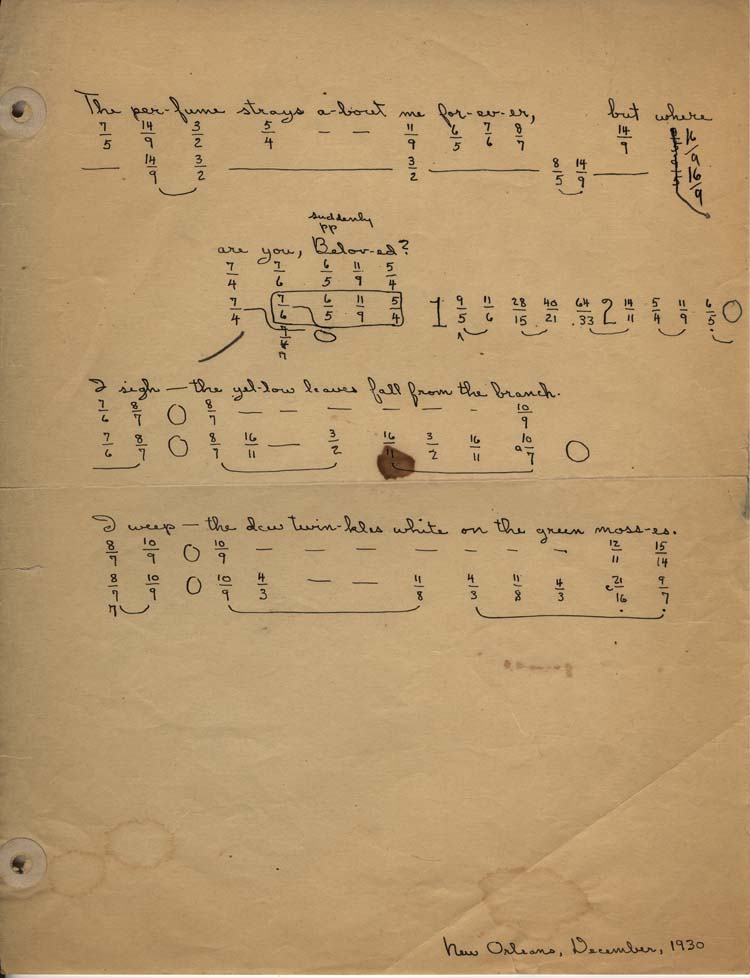 The per-fume strays a-bout me for-ev-er, but where
7/5 14/9 3/2 5/4 — — 11/9 6/5 7/6 8/7 14/9 16/9
— 14/9 3/2 — 3/2 — 8/5 14/9 — 16/9
suddenly
pp
are you, Belov-ed?
7/4 7/6 6/5 11/9 5/4
7/4 7/6 6/5 11/9 5/4 1 9/5 11/6 28/15 40/21 64/33 2 14/11 5/4 11/9 6/5 O
O
I sigh — the yel-low leaves fall from the branch.
7/6 8/7 O 8/7 — — — — — - 10/9
7/6 8/7 O 8/7 16/11 — 3/2 16/11 3/2 16/11 10/7 O
I weep — the dew twin-kles white on the green moss-es.
8/7 10/9 O 10/9 — — — — — — — 12/11 15/14
8/7 10/9 O 10/9 4/3 — — 11/8 4/3 11/8 4/3 21/16 9/7
7
New Orleans, December, 1930